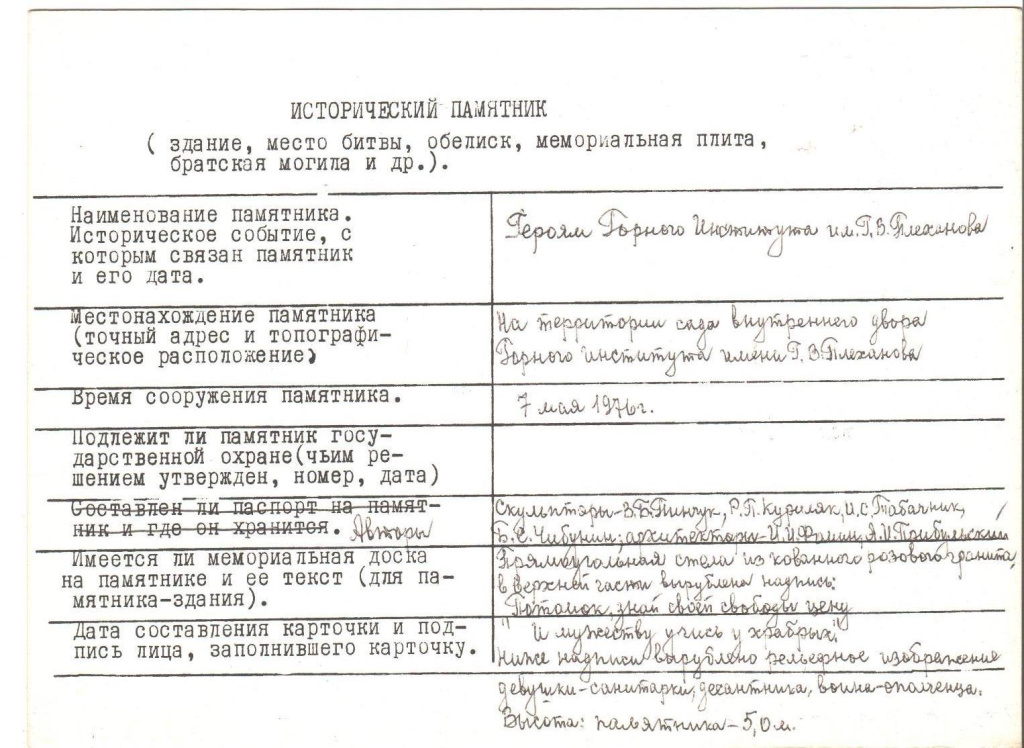 ИСТОРИЧЕСКИЙ ПАМЯТНИК
( здание, место битвы, обелиск, мемориальная плита,
братская могила и др.).
Наименование памятника.
Историческое событие, с
которым связан памятник
и его дата.
Героям Горного Института им. Г.В.Плеханова
Местонахождение памятника
(точный адрес и топографи-
ческое расположение)
На территории сада внутреннего двора
Горного института имени Г.В.Плеханова
Время сооружения памятника.
7 мая 1976г.
Подлежит ли памятник госу-
дарственной охране(чьим ре-
шением утвержден, номер, дата)
Составлен ли паспорт на памят-
ник и где он хранится. Авторы
Скульпторы-В.Б.Пинчук, Р.П.Куриляк, И.С.Табачник,
Б.С.Чибунин; архитекторы-И.И.Фомин, Я.И.Прибульский
Имеется ли мемориальная доска
на памятнике и ее текст (для па-
мятника-здания).
Прямоугольная стела из кованного розового гранита,
в верхней части вырублена надпись:
"Потомок, знай своей свободы цену
Дата составления карточки и под-
пись лица, заполнившего карточку.
И мужеству учись у храбрых".
Ниже надписи вырублено рельефное изображение
девушки-санитарки, десантника, воина-ополченца.
Высота: памятника-5,0м.